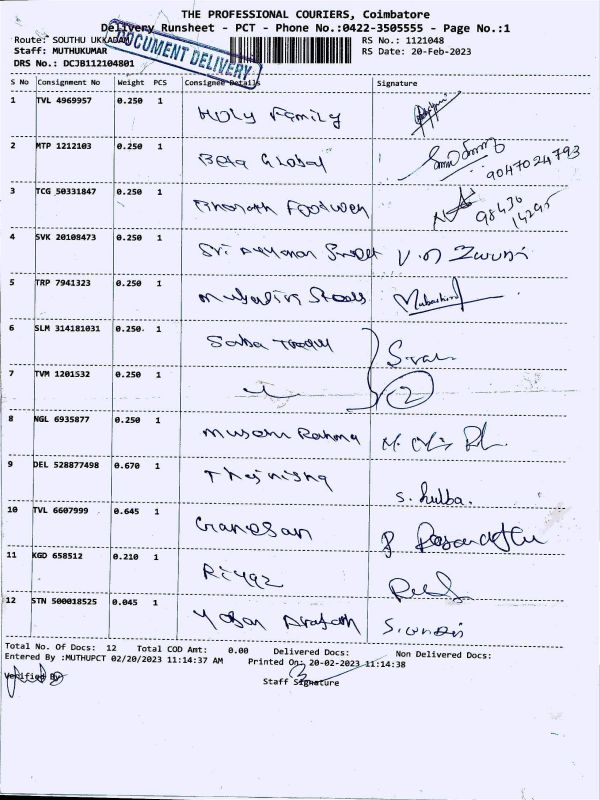 THE PROFESSIONAL COURIERS, Coimbatore
Delivery Runsheet - PCT - Phone No.:0422-3505555 - Page No.:1
Route: SOUTHU UKKADAM
RS No.: 1121048
Staff: MUTHUKUMAR
RS Date: 20-Feb-2023
DRS No.: DCJB112104801
DOCUMENT DELIVERY
S No Consignment No Weight PCS Consignee Details Signature
1 TVL 4969957 0.250 1 Holy Family
2 MTP 1212103 0.250 1 Beta Global 9047024793
3 TCG 50331847 0.250 1 Bharath Footwear 98436 14295
4 SVK 20108473 0.250 1 Sri
5 TRP 7941323 0.250 1 Steels
6 SLM 314181031 0.250 1 Saba
7 TVM 1201532 0.250 1 2
8 NGL 6935877 0.250 1 Rahma
9 DEL 528877498 0.670 1 Thajnisha
10 TVL 6607999 0.645 1 Ganesan
11 KGD 658512 0.210 1 Riyaz
12 STN 500018525 0.045 1 Arafath
Total No. Of Docs: 12 Total COD Amt: 0.00 Delivered Docs: Non Delivered Docs:
Entered By :MUTHUPCT 02/20/2023 11:14:37 AM Printed On: 20-02-2023 11:14:38
Verified By
Staff Signature